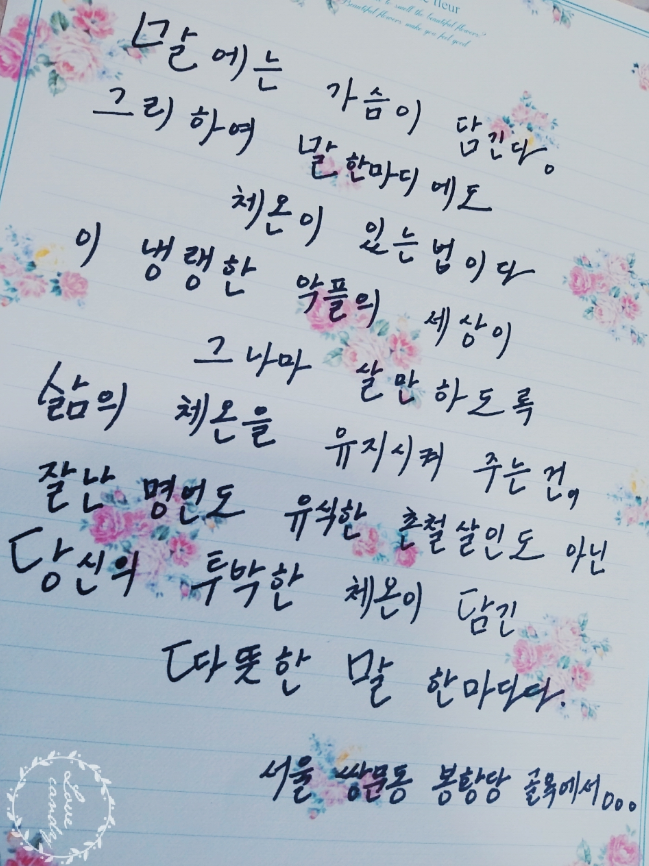 fleur
to smell the beautiful flowers.
Beautiful flowers make you feel good
말에는 가슴이 담긴다.
그리하여 말한마디에도
체온이 있는 법이다
이 냉랭한 악플의 세상이
그나마 살만하도록
삶의 체온을 유지시켜 주는 건,
잘난 명언도 유식한 촌철살인도 아닌
당신의 투박한 체온이 담긴
따뜻한 말 한마디다.
서울 쌍문동 봉황당 골목에서...
Love candy